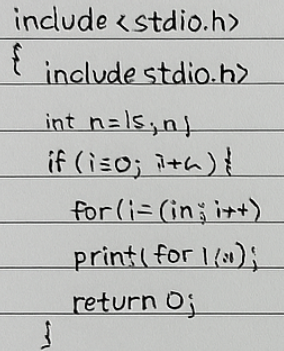 include <stdio.h>
{ include stdio.h>
int n=15;n;
if (i≡0; i++) {
for(i=(in; i++)
print(for 1(n);
return 0;
}